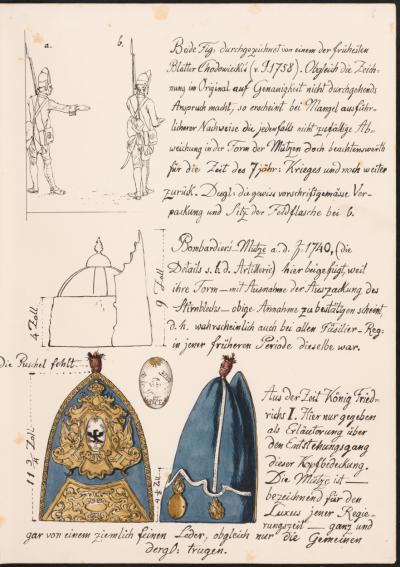 a. b.
Beide Fig: durchgezeichnet von einem der frühesten
Blätter Chodowiecki's (v. J. 1758). Obgleich die Zeich-
nung im Orginal auf Genauigkeit nicht durchgehends
Anspruch macht, so erscheint bei Mangel ausführ-
licherer Nachweise die jedenfalls nicht zufällige Ab-
weichung in der Form der Mützen doch beachtenswerth
für die Zeit des 7 jähr: Krieges und noch weiter
zurück. Desgl: die gewiss vorschriftsgemässe Ver-
packung und Sitz der Feldflasche bei b.
4 Zoll
9 Zoll
Bombardiers Mütze a. d. J. 1740, (die
Details s. b. d. Artillerie) hier beigefügt, weil
ihre Form — mit Ausnahme der Auszackung des
Stirnblechs — obige Annahme zu bestätigen scheint,
d. h. wahrscheinlich auch bei allen Füsilier-Reg:
in jener früheren Periode dieselbe war.
die Puschel fehlt
11 3/4 Zoll
4 1/2 Zll.
Aus der Zeit König Fried-
richs I. Hier nur gegeben
als Erläuterung über
den Entstehungsgang
dieser Kopfbedeckung.
Die Mütze ist —
bezeichnend für den
Luxus jener Regie-
rungszeit — ganz und
gar von einem ziemlich feinen Leder, obgleich nur die Gemeinen
dergl: trugen.